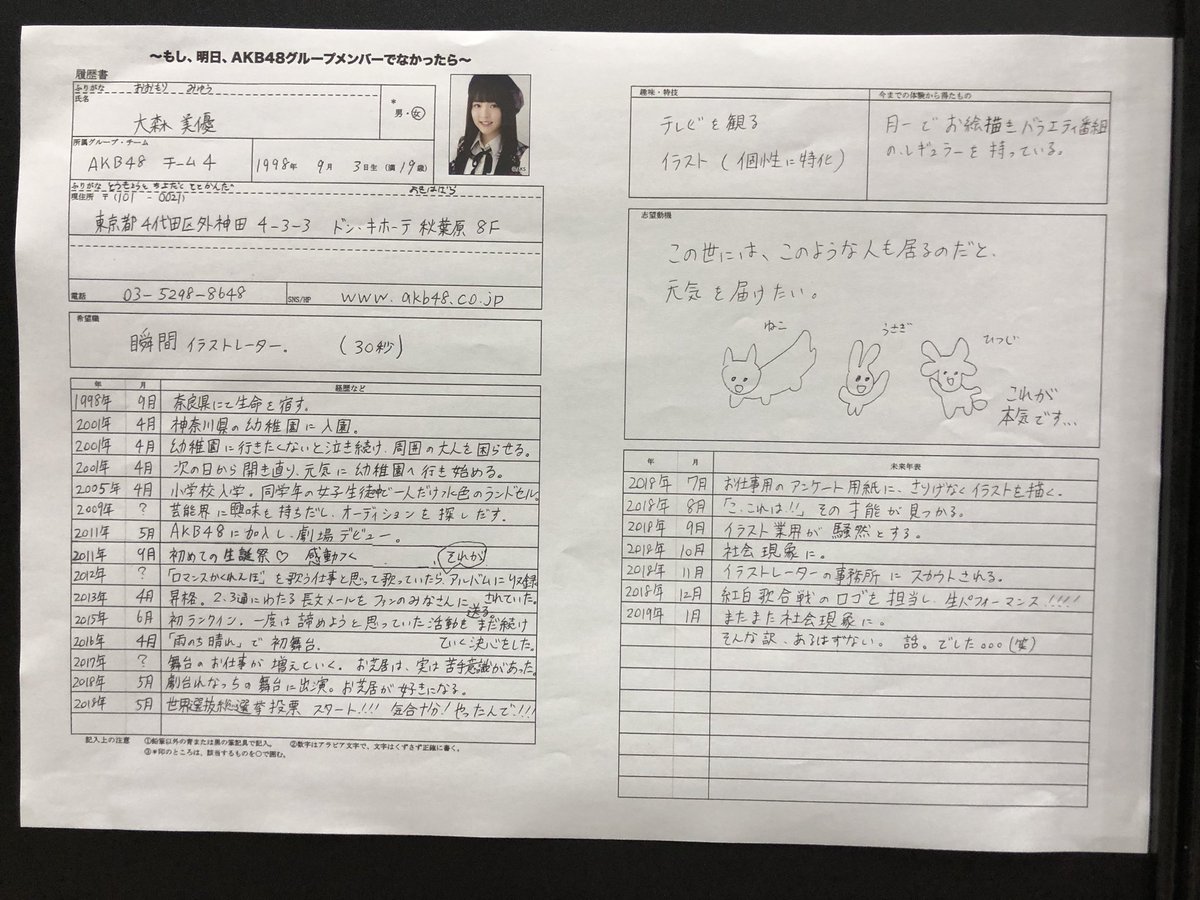 ～もし、明日、AKB48グループメンバーでなかったら～
履歴書
ふりがな おおもり みゆう
氏名
大森 美優
*
男・女
所属グループ・チーム
AKB48 チーム4
1998年 9月 3日生(満19歳)
ふりがな とうきょうと ちよだく そとかんだ あきはばら
現住所 〒(101 - 0021)
東京都4代田区外神田 4-3-3 ドン・キホーテ 秋葉原 8F
電話 03-5298-8648
SNS/HP www.akb48.co.jp
希望職
瞬間 イラストレーター。 (30秒)
年 月 経歴など
1998年 9月 奈良県にて生命を宿す。
2001年 4月 神奈川県の幼稚園に入園。
2001年 4月 幼稚園に行きたくないと泣き続け、周囲の大人を困らせる。
2001年 4月 次の日から開き直り、元気に幼稚園へ行き始める。
2005年 4月 小学校入学。同学年の女子生徒で一人だけ水色のランドセル。
2009年 ? 芸能界に興味を持ちだし、オーディションを探しだす。
2011年 5月 AKB48に加入し、劇場デビュー。
2011年 9月 初めての生誕祭♡ 感動つく
それが
2012年 ? 「ロマンスかくれんぼ」を歌う仕事と思って歌っていたら、アルバムにリ録
されていた。
2013年 4月 昇格。2、3通にわたる長文メールをファンのみなさんに
送る
2015年 6月 初ランクイン。一度は諦めようと思っていた活動をまだ続け
ていく決心をした。
2016年 4月 「雨のち晴れ」で初舞台。
2017年 ? 舞台のお仕事が増えていく。お芝居は、実は苦手意識があった。
2018年 5月 劇台れなっちの舞台に出演。お芝居が好きになる。
2018年 5月 世界選抜総選挙投票 スタート!!!! 気合十分!やったんで!!!
記入上の注意 ①鉛筆以外の青または黒の筆記具で記入。 ②数字はアラビア文字で、文字はくずさず正確に書く。
③*印のところは、該当するものを○で囲む。
趣味・特技
テレビを観る
イラスト (個性に特化)
今までの体験から得たもの
月一でお絵描きバラエティ番組
のレギュラーを持っている。
志望動機
この世には、このような人も居るのだと、
元気を届けたい。
ねこ
うさぎ
ひつじ
これが
本気です…
年 月 未来年表
2018年 7月 お仕事用のアンケート用紙に、さりげなくイラストを描く。
2018年 8月 「こ、これは!!」その才能が見つかる。
2018年 9月 イラスト業界が騒然とする。
2018年 10月 社会現象に。
2018年 11月 イラストレーターの事務所にスカウトされる。
2018年 12月 紅白歌合戦のロゴを担当し、生パフォーマンス!!!!!
2019年 1月 またまた社会現象に。
そんな訳、あるはずない。話。でした。。。(笑)